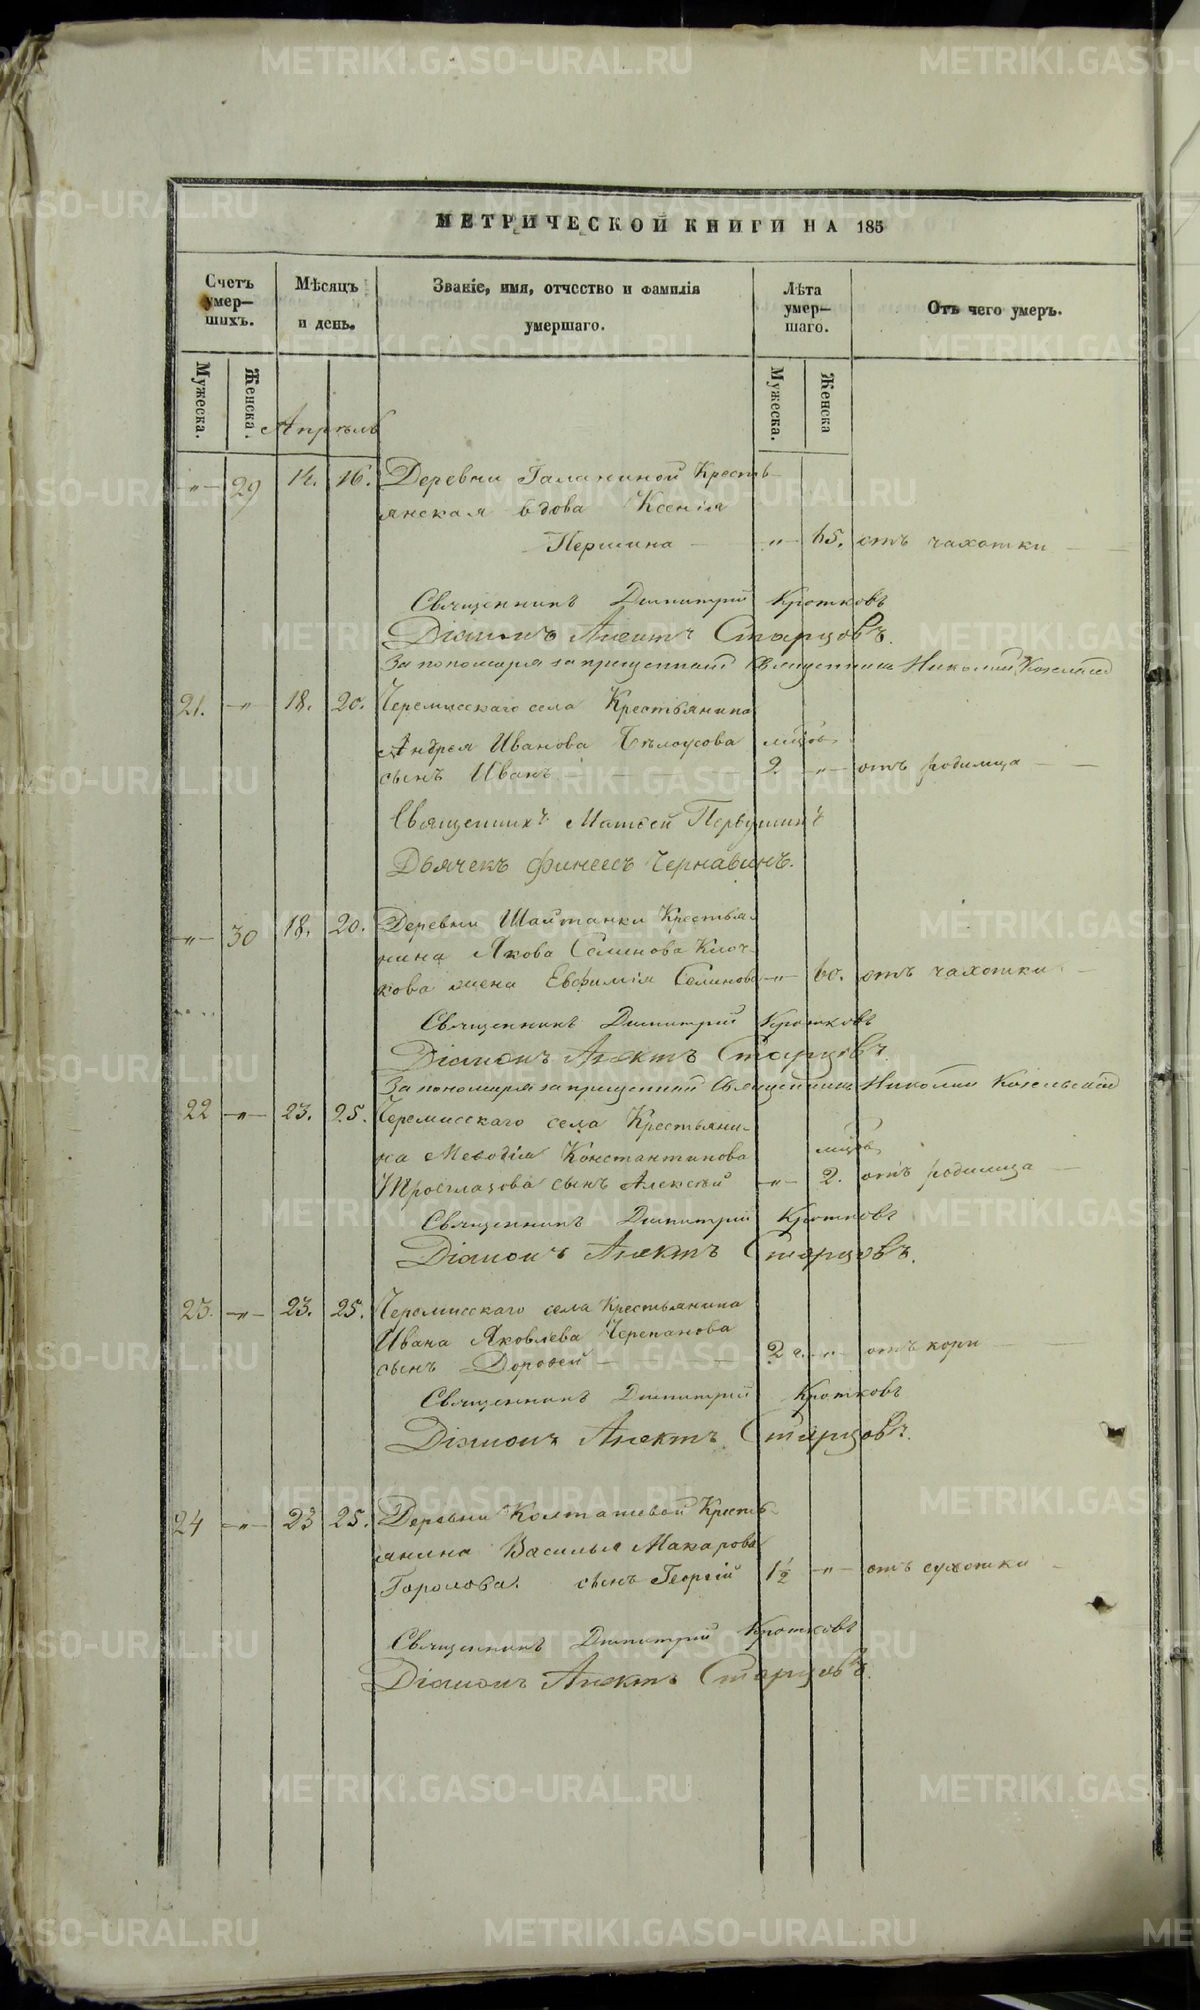 МЕТРИЧЕСКОЙ КНИГИ НА 185
Счетъ умер—шихъ.
Мѣсяцъ и день.
Званіе, имя, отчество и фамилія умершаго.
Лѣта умер—шаго.
Отъ чего умеръ.
Мужеска.
Женска.
Мужеска.
Женска
Апрѣль
„ 29 14. 16. Деревни Галаниной Кресть-
янская вдова Ксенія
Першина — „ 65. отъ чахотки —
Священникъ Димитрій Кротковъ
Діаконъ Алектъ Старцовъ.
За пономаря запрещенный Священникъ Николай
21. „ 18. 20. Черемисскаго села Крестьянина
Андрея Иванова Бѣлоусова мѣсцов
сынъ Иванъ — 2 „ отъ родимца —
Священникъ Матѳей Первушинъ
Дьячекъ Финеесъ Чернавинъ.
„ 30 18. 20. Деревни Шайтанки Крестья-
нина Якова Семенова Клоч-
кова жена Евфимія Семенова „ 60. отъ чахотки —
Священникъ Димитрій Кротковъ
Діаконъ Алектъ Старцовъ
За пономаря запрещенный Священникъ Николай
22 „ 23. 25. Черемисскаго села Крестьяни-
на Меѳодія Константинова
сынъ Алексѣй „ 2. отъ родимца —
Священникъ Димитрій Кротковъ
Діаконъ Алектъ Старцовъ.
23. „ 23. 25. Черемисскаго села Крестьянина
Ивана Яковлева Черепанова
сынъ Дороѳей — 2 г. „ отъ кори —
Священникъ Димитрій Кротковъ
Діаконъ Алектъ Старцовъ.
24 „ 23 25. Деревни Колташевой Кресть-
янина Василья Макарова
сынъ Георгій 1½ „ отъ сухотки —
Священникъ Димитрій Кротковъ
Діаконъ Алектъ Старцовъ.
METRIKI.GASO-URAL.RU